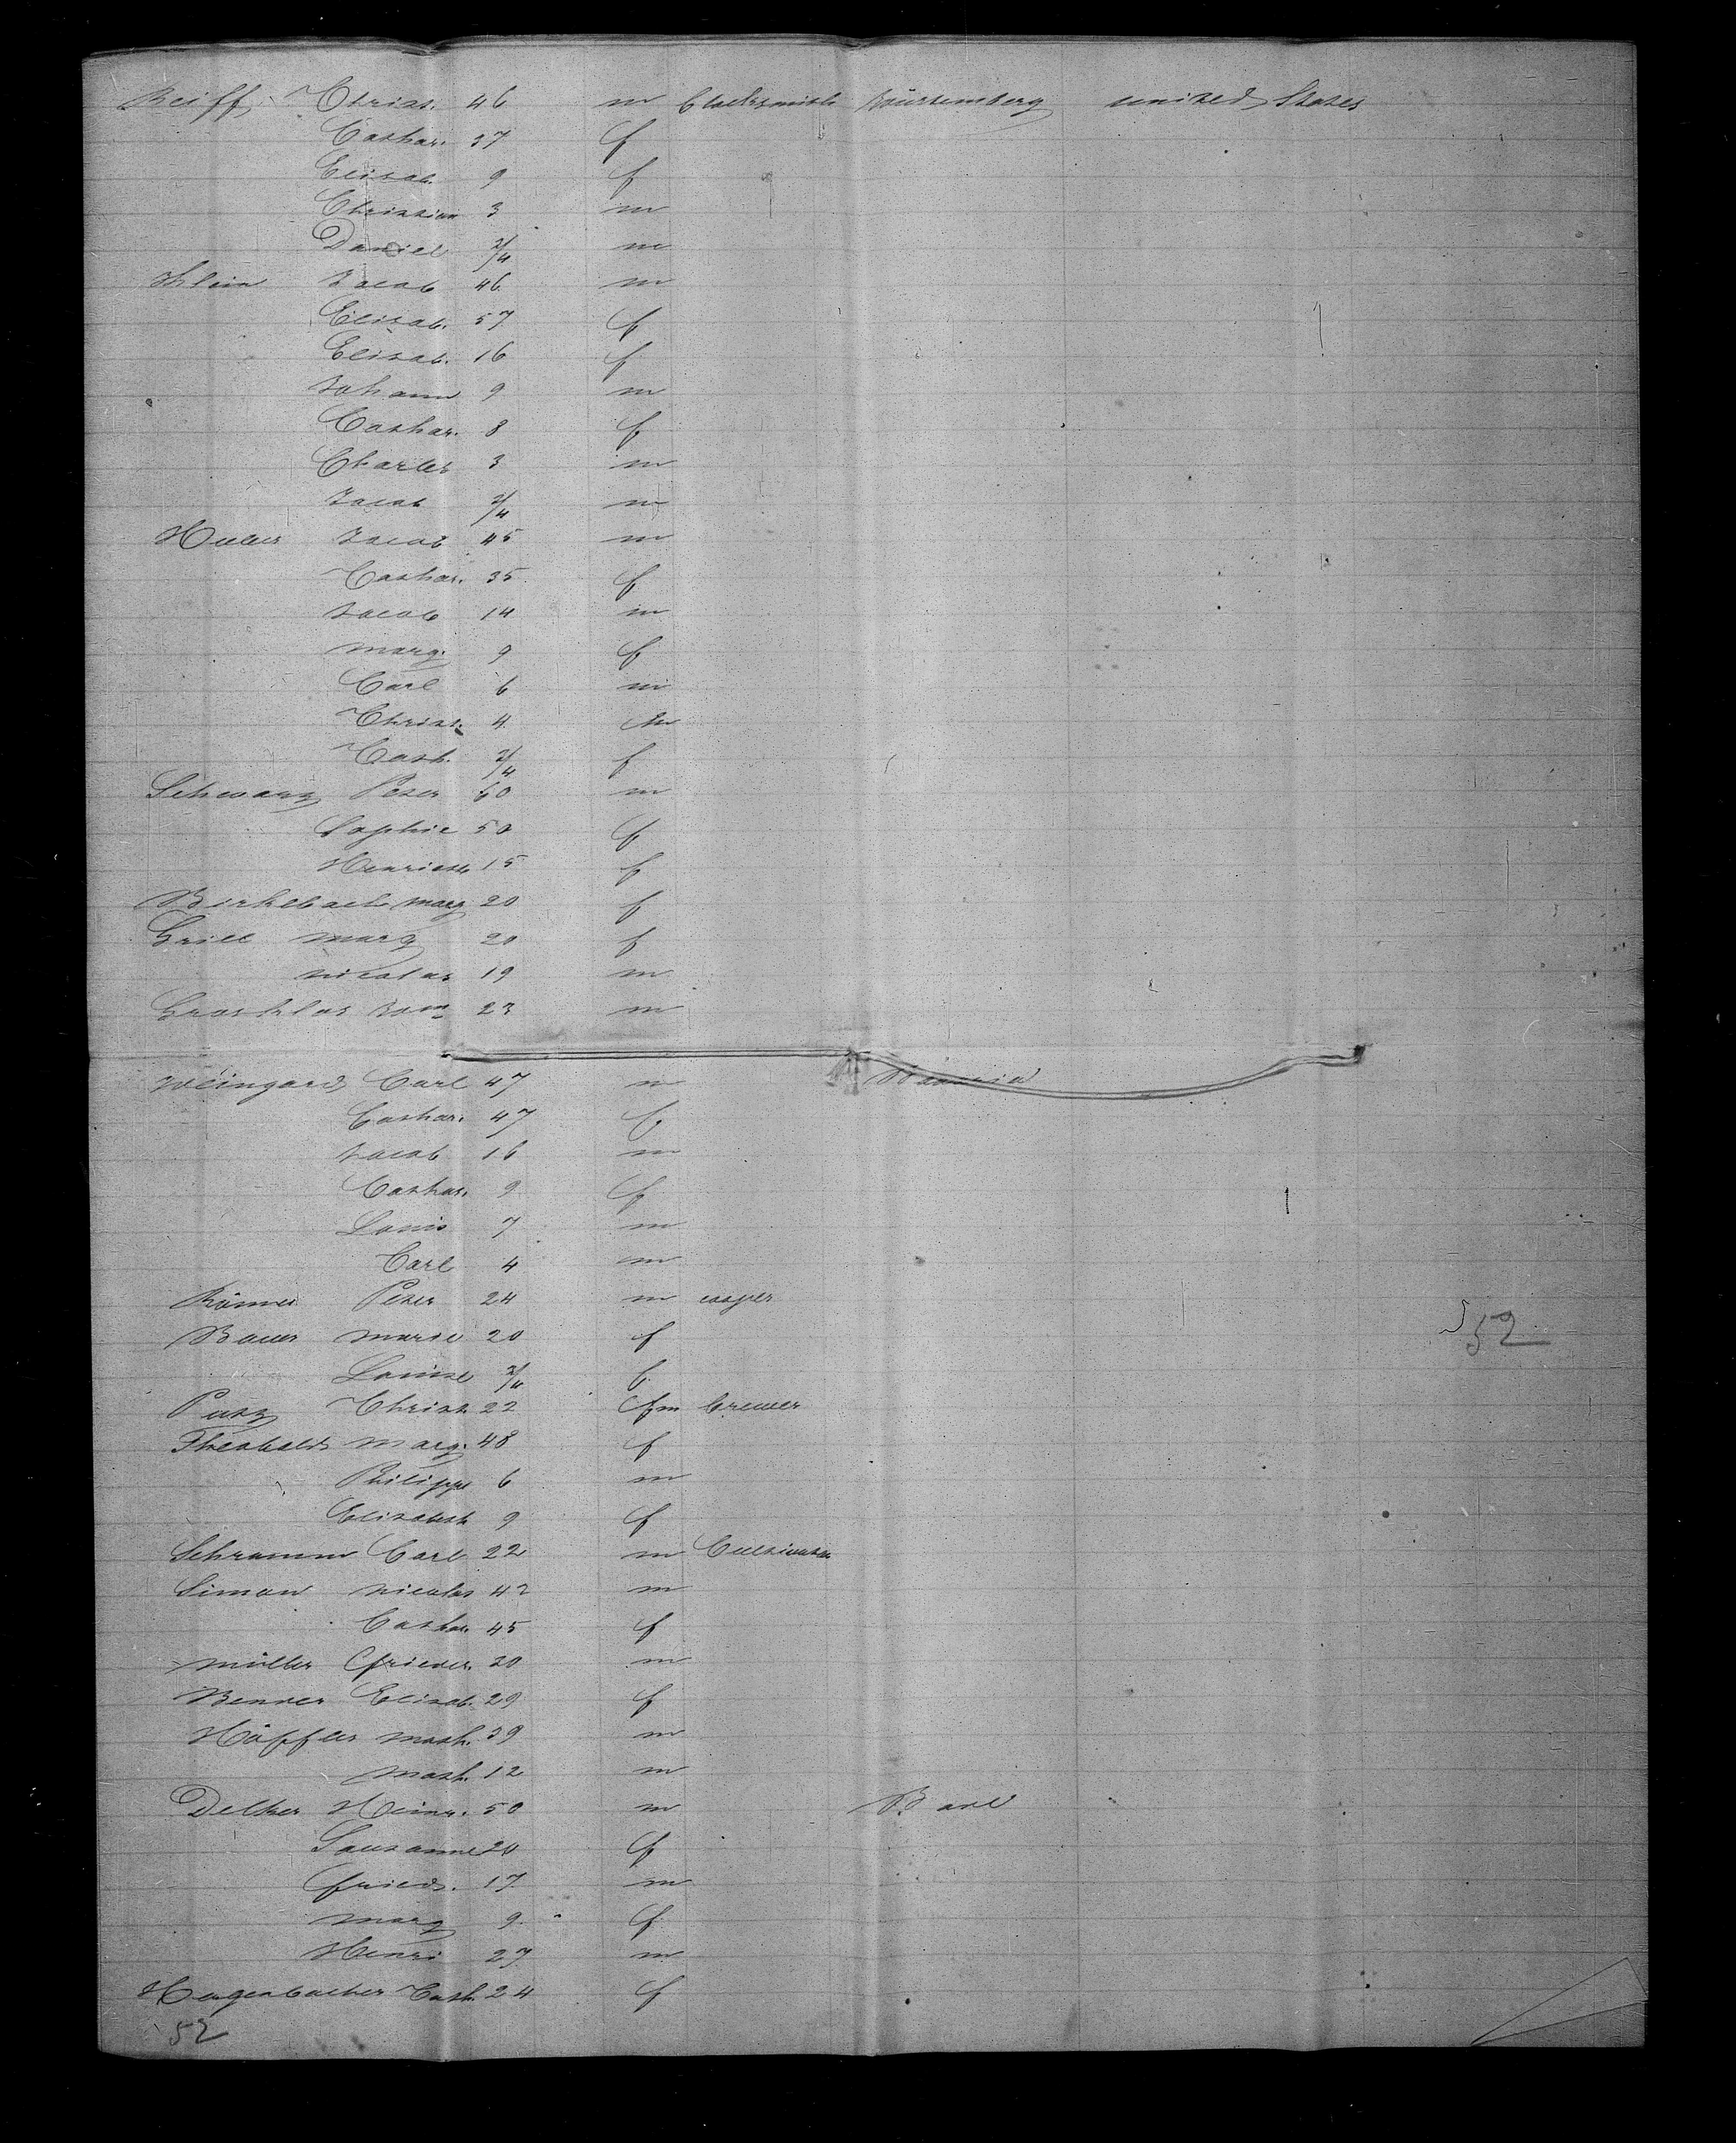 Reiff Christ. 46 m blacksmith Würtemberg united States
Cathar. 37 f
Elisab. 9 f
Christian 3 m
Daniel 3/4 m
Klein Jacob 46 m
Elisab. 57 f
Elisab. 16 f
Johann 9 m
Cathar. 8 f
Charles 3 m
Jacob 3/4 m
Huber Jacob 45 m
Cathar. 35 f
Jacob 14 m
Marg. 9 f
Carl 6 m
Christ. 4 m
Cath. 3/4 f
Schwarz Peter 60 m
Sophie 50 f
Henriette 15 f
Birkelbach Marg 20 f
Grill Marg 20 f
Nicolas 19 m
Grosklos 23 m
Weingard Carl 47 m Bavaria
Cathar. 47 f
Jacob 16 m
Cathar. 9 f
Louis 7 m
Carl 4 m
Römer Peter 24 m
Bauer Marie 20 f
Louise 3/4 f
52
Putz Christ. 22 m brewer
Theobald Marg. 48 f
Philippe 6 m
Elisabeth 9 f
Schramm Carl 22 m Cultivator
Simon Nicolas 42 m
Cathar. 45 f
Müller Frieder. 20 m
Benner Elisab. 29 f
Höffler Math. 39 m
Math. 12 m
Delker Heinr. 50 m
Sousanne 20 f
Fried. 17 m
Marg 9 f
Henri 27 m
Hengenbacher Cath. 24 f
52